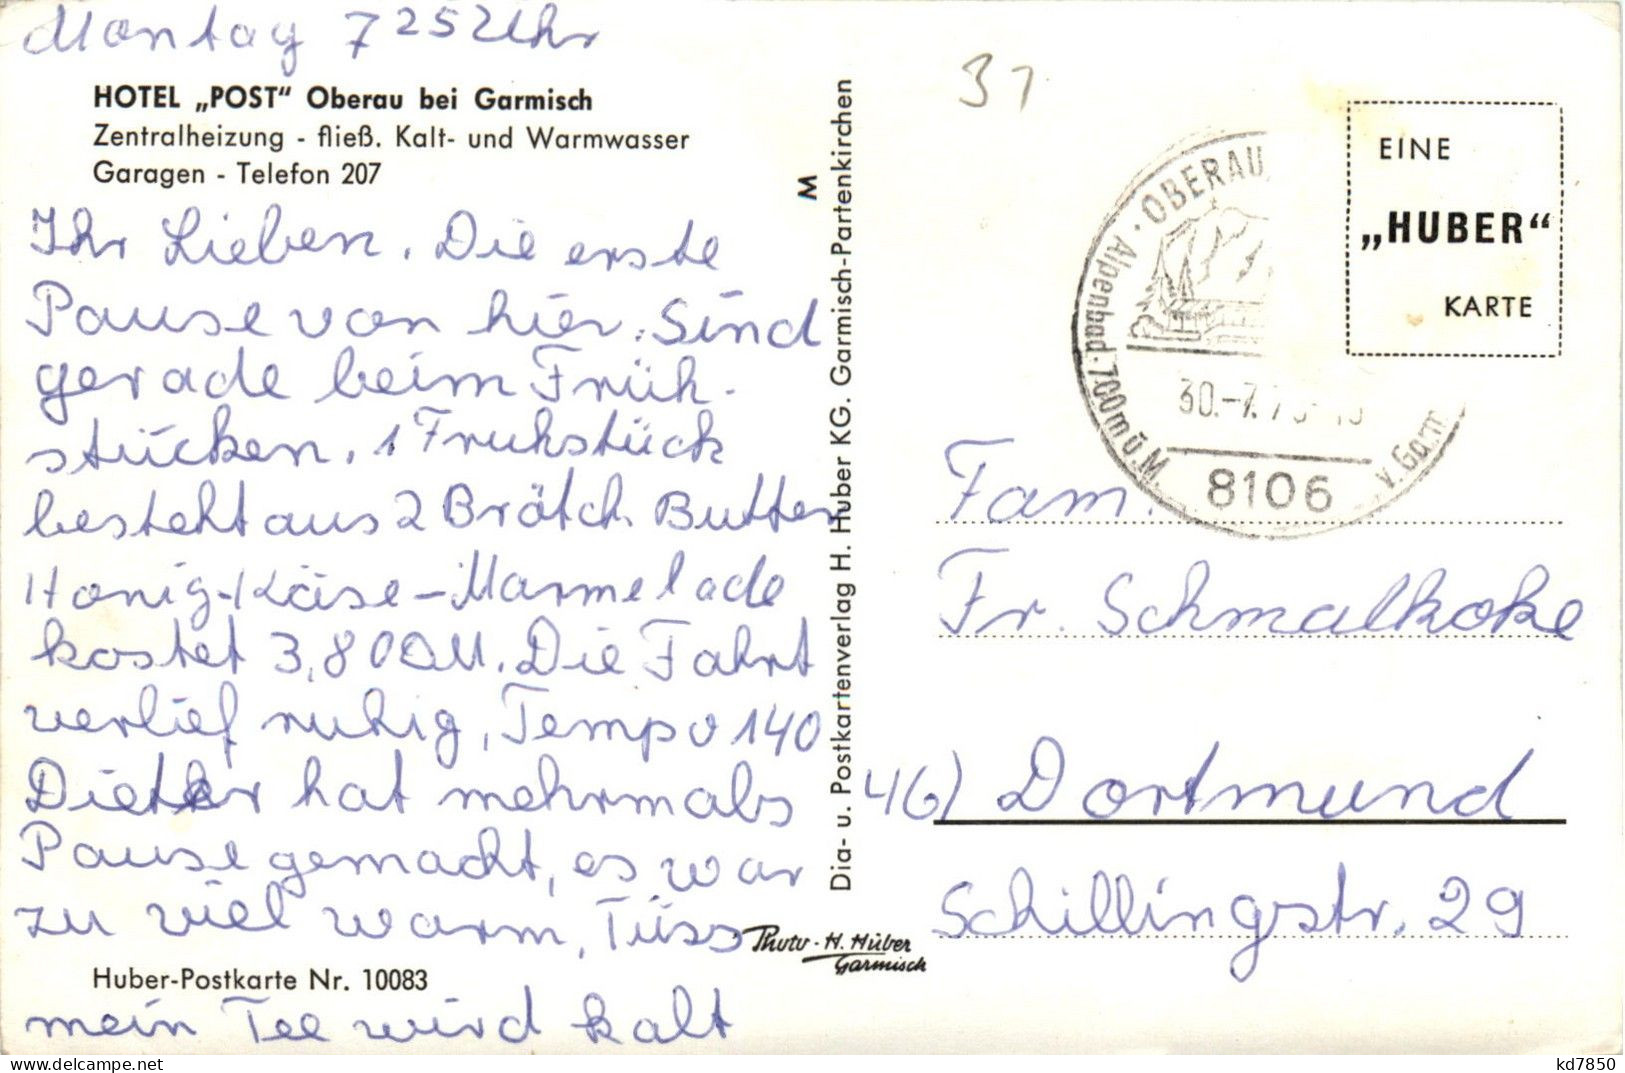 Montag 7 25 Uhr
HOTEL „POST“ Oberau bei Garmisch
Zentralheizung - fließ. Kalt- und Warmwasser
Garagen - Telefon 207
Ihr Lieben. Die erste
Pause von hier. Sind
gerade beim Früh-
stücken. 1 Fruhstück
besteht aus 2 Brötch. Butter
Honig-Käse-Marmelade
kostet 3,80 DM. Die Fahrt
verlief ruhig, Tempo 140
Dieter hat mehrmals
Pause gemacht, es war
zu viel warm, Tüss
Huber-Postkarte Nr. 10083
mein Tee wird kalt
Photo - H. Huber
Garmisch
M
Dia- u. Postkartenverlag H. Huber KG. Garmisch-Partenkirchen
31
EINE
„HUBER“
KARTE
OBERAU
Alpenbad · 700m ü. M.
v. Garm
30.-7.7
8106
Fam.
Fr. Schmalkoke
46) Dortmund
Schillingstr. 29
kd7850